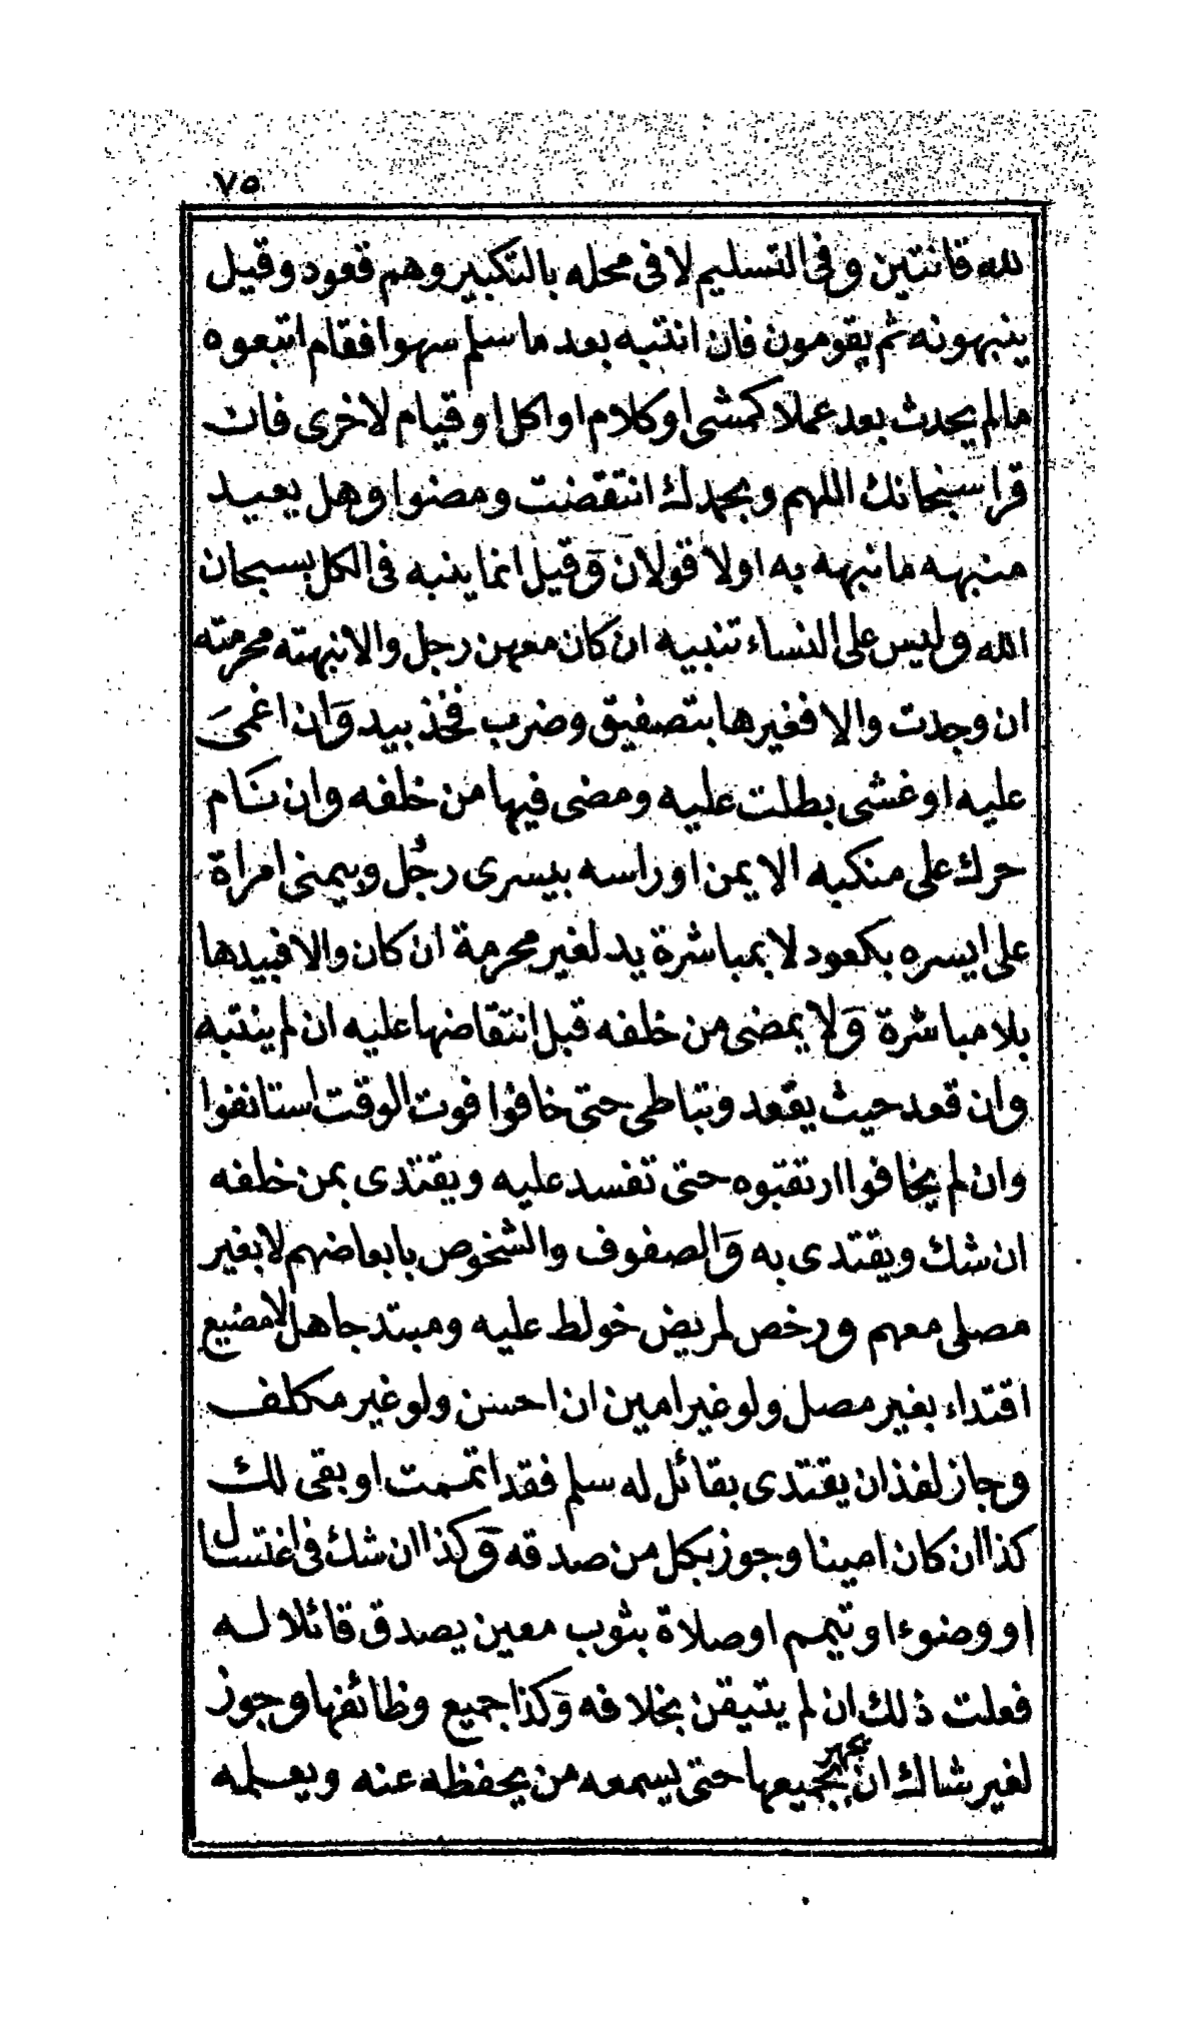 ٧٥
لله قانتين وفى التسليم لا فى محله بالتكبير وهم قعود وقيل
ينبهونه ثم يقومون فان انتبه بعد ما سلم سهوا فقام اتبعوه
مالم يحدث بعد عملا كمشى او كلام او اكل او قيام لاخرى فان
قرا سبحانك اللهم وبحمدك انتقضت ومضوا وهل يعيد
منبهه ما نبهه به اولا قولان وقيل انما ينبه فى الكل بسبحان
الله وليس على النساء تنبيه ان كان معهن رجل والا نبهته محرمته
ان وجدت والا فغيرها بتصفيق وضرب فخذ بيد وان اغمى
عليه او غشى بطلت عليه ومضى فيها من خلفه وان نام
حرك على منكبه الايمن او راسه بيسرى رجل وبيمنى امراة
على ايسره بكعود لا بمباشرة يد لغير محرمة ان كان والا فبيدها
بلا مباشرة ولا يمضى من خلفه قبل انتقاضها عليه ان لم ينتبه
وان قعد حيث يقعد وتباطى حتى خافوا فوت الوقت استانفوا
وان لم يخافوا ارتقبوه حتى تفسد عليه ويقتدى بمن خلفه
ان شك ويقتدى به والصفوف والشخوص بابعاضهم لا بغير
مصلى معهم ورخص لمريض خولط عليه ومبتد جاهل لا مضيع
اقتداء بغير مصل ولو غير امين ان احسن ولو غير مكلف
وجاز لفذ ان يقتدى بقائل له سلم فقد اتممت او بقى لك
كذا ان كان امينا وجوز بكل من صدقه وكذا ان شك فى اغتسال
او وضوء او تيمم او صلاة بثوب معين يصدق قائلا له
فعلت ذلك ان لم يتيقن بخلافه وكذا جميع وظائفها وجوز
لغير شاك ان يجهر بجميعها حتى يسمعه من يحفظه عنه ويعلمه